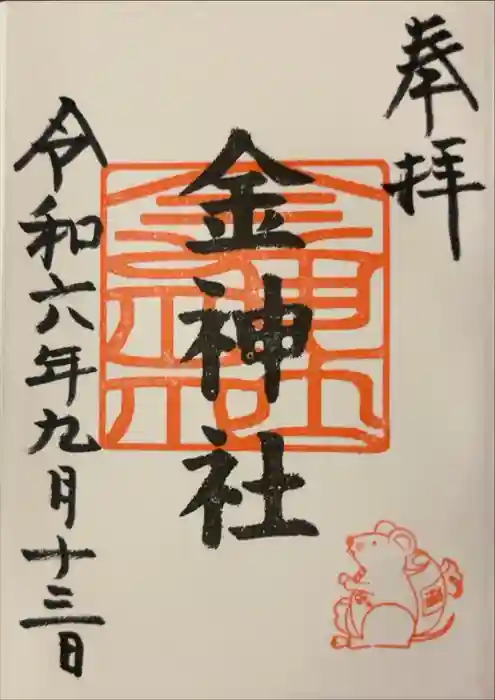 奉拝
金神社
金神社
令和六年九月十三日